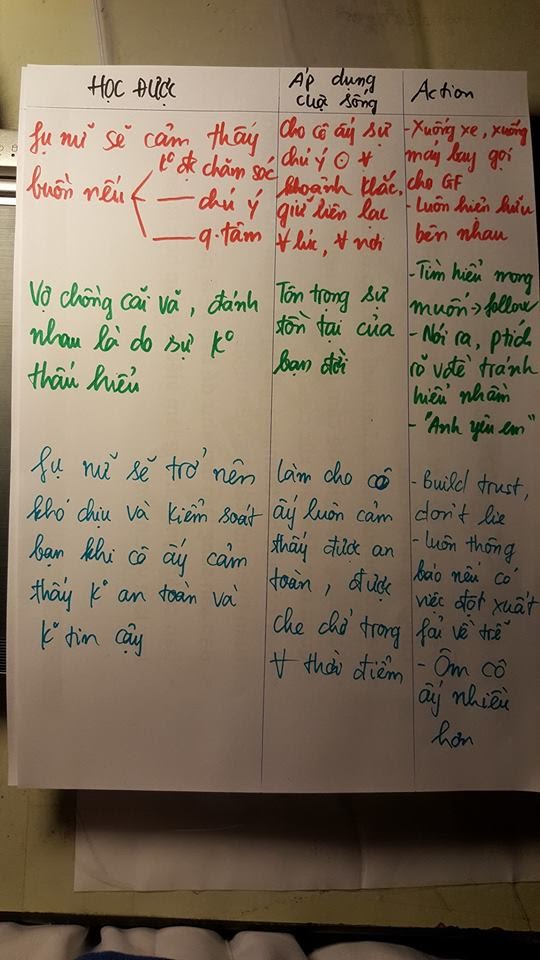 HỌC ĐƯỢC
Áp dụng
cuộ sống
Action
fụ nữ sẽ cảm thấy
buồn nếu
k° đc chăm sóc
chú ý
q.tâm
Cho cô ấy sự
chú ý ʘ ∀
khoảnh khắc,
giữ liên lạc
∀ lúc, ∀ nơi
- Xuống xe, xuống
máy bay gọi
cho GF
- Luôn hiện hữu
bên nhau
Vợ chồng cãi vã, đánh
nhau là do sự k°
thấu hiểu
Tôn trọng sự
tồn tại của
bạn đời
- Tìm hiểu mong
muốn → follow
- Nói ra, ptích
rõ vđề tránh
hiểu nhầm
- "Anh yêu em"
fụ nữ sẽ trở nên
khó chịu và kiểm soát
bạn khi cô ấy cảm
thấy k° an toàn và
k° tin cậy
Làm cho cô
ấy luôn cảm
thấy được an
toàn, được
che chở trong
∀ thời điểm
- Build trust,
don't lie
- Luôn thông
báo nếu có
việc đột xuất
fải về trễ
- Ôm cô
ấy nhiều
hơn